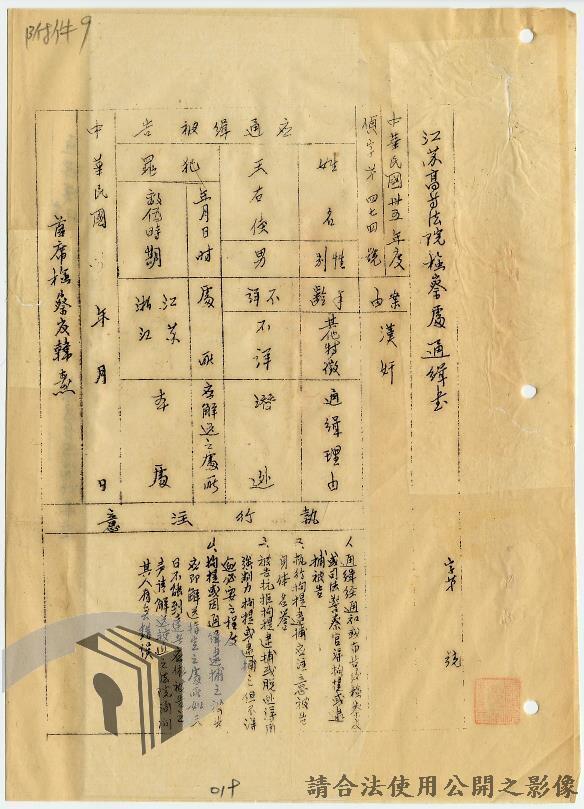 附件9
江苏高等法院檢察處通緝書
字第 號
中華民國卅五年度
偵字第四七四號
案由
漢奸
應通緝被告
姓名
性別
年齡
其他特徵
通緝理由
王右俠
男
不詳
不詳
潛逃
犯罪
年月日时
處所
應解送之處所
敵偽時期
江苏
浙江
本處
執行注意
人通緝經通知或布告後檢察官
或司法警察官得拘提或逮
捕被告
又、执行拘提逮捕应注意被告
身体名誉
被告抗拒拘提逮捕或脱逃得用
強制力拘提或逮捕之但不得
逾必要之程度
拘提或因通緝逮捕之被告
应即解送指定之處所如三
日不能到達
之法院詢訊
其人有無錯誤
中華民國 年 月 日
首席檢察官韓燾
019
請合法使用公開之影像